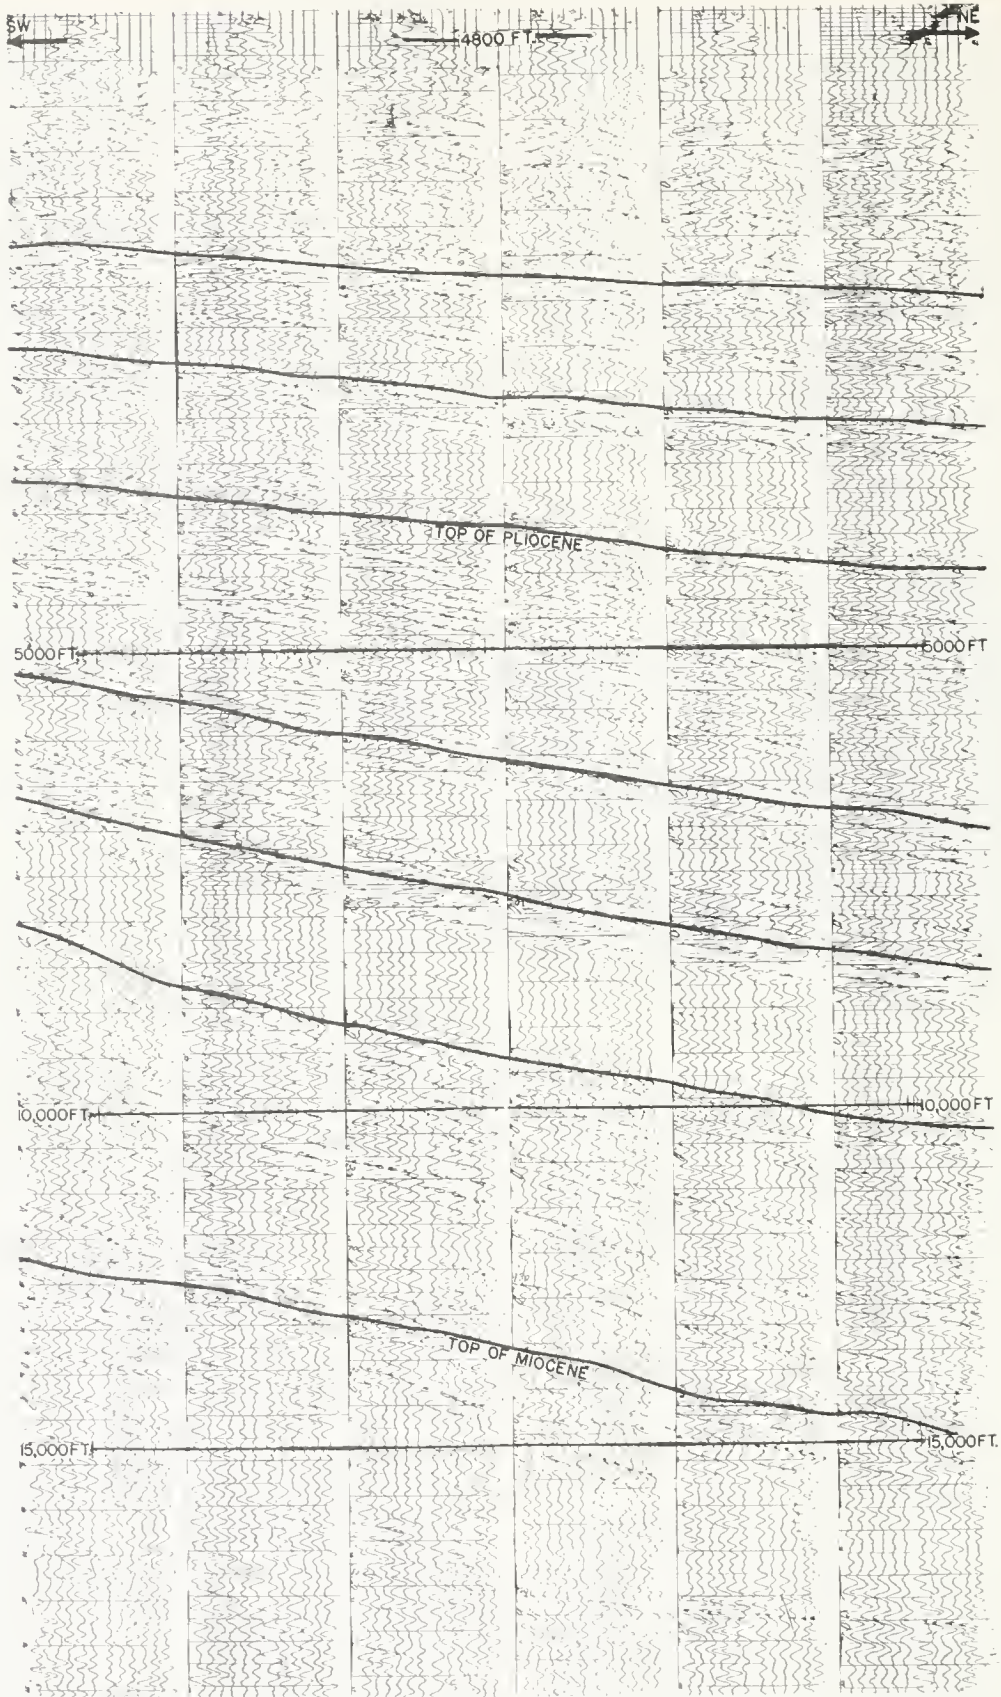 SW
4800 FT.
NE
TOP OF PLIOCENE
5000 FT.
5000 FT
10,000 FT.
10,000 FT
TOP OF MIOCENE
15,000 FT.
15,000 FT.